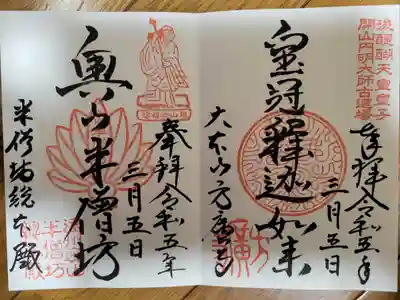 後醍醐天皇皇子
開山円明大師古道場
奉拝令和五年
三月五日
宝冠釋迦如来
大本山方廣寺
奉拝令和五年
三月五日
奥山半僧坊
半僧坊総本殿